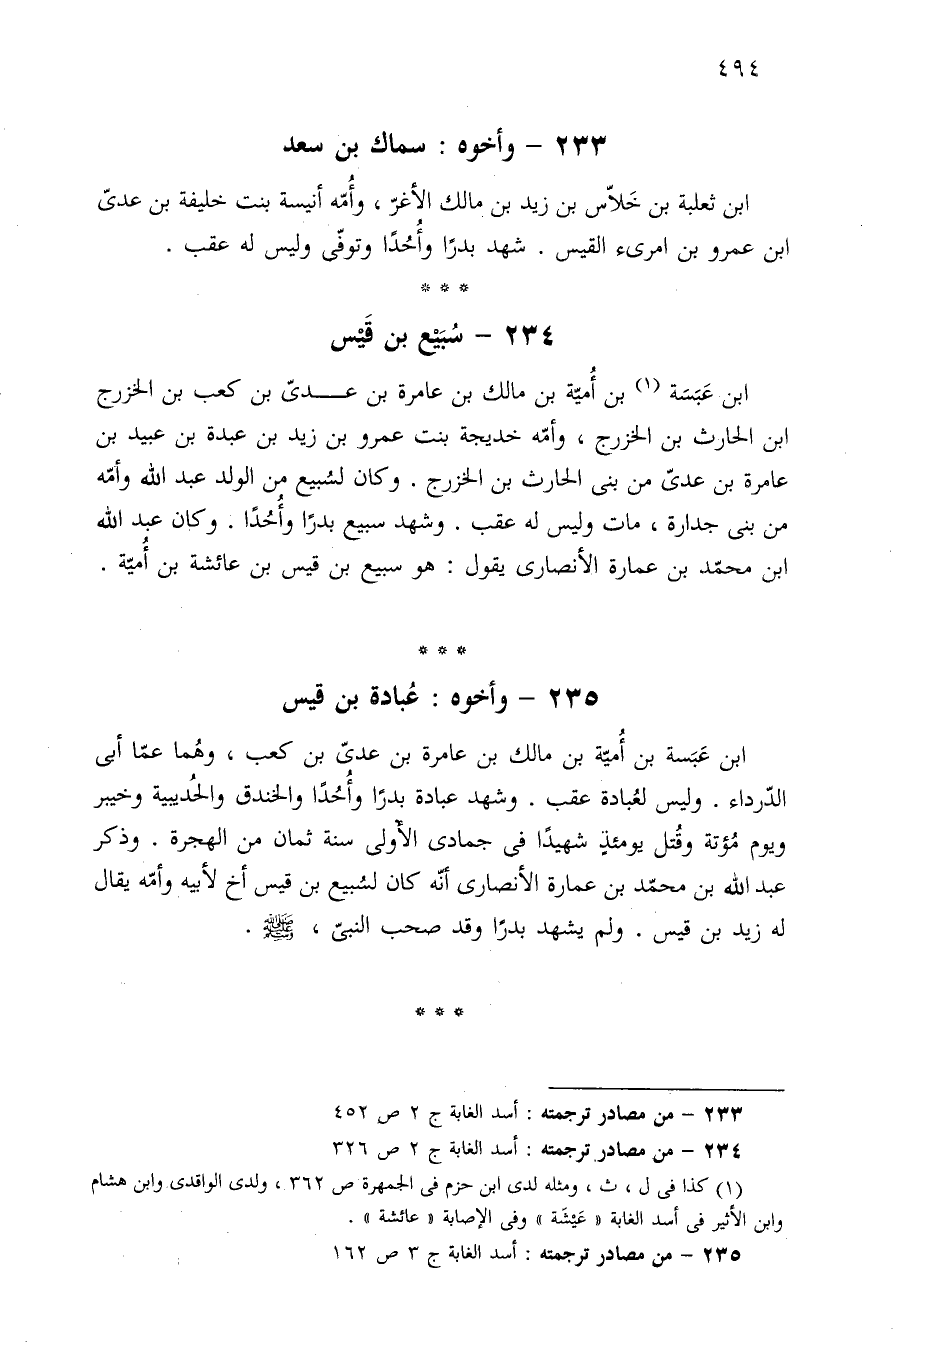 ٤٩٤
٢٣٣ – وأخوه : سماك بن سعد
ابن ثعلبة بن خَلاّس بن زيد بن مالك الأغرّ ، وأُمّه أنيسة بنت خليفة بن عدىّ
ابن عمرو بن امرىء القيس . شهد بدرًا وأُحُدًا وتوفّى وليس له عقب .
* * *
٢٣٤ – سُبَيْع بن قَيْس
ابن عَبَسَة (١) بن أُميّة بن مالك بن عامرة بن عـــدىّ بن كعب بن الخزرج
ابن الحارث بن الخزرج ، وأمّه خديجة بنت عمرو بن زيد بن عبدة بن عبيد بن
عامرة بن عدىّ من بنى الحارث بن الخزرج . وكان لسُبيع من الولد عبد الله وأمّه
من بنى جدارة ، مات وليس له عقب . وشهد سبيع بدرًا وأُحُدًا . وكان عبد الله
ابن محمّد بن عمارة الأنصارى يقول : هو سبيع بن قيس بن عائشة بن أُميّة .
* * *
٢٣٥ – وأخوه : عُبادة بن قيس
ابن عَبَسة بن أُميّة بن مالك بن عامرة بن عدىّ بن كعب ، وهُما عمّا أبى
الدّرداء . وليس لعُبادة عقب . وشهد عبادة بدرًا وأُحُدًا والخندق والحُديبية وخيبر
ويوم مُؤتة وقُتل يومئذٍ شهيدًا فى جمادى الأولى سنة ثمان من الهجرة . وذكر
عبد الله بن محمّد بن عمارة الأنصارى أنّه كان لسُبيع بن قيس أخ لأبيه وأمّه يقال
له زيد بن قيس . ولم يشهد بدرًا وقد صحب النبىّ ، ﷺ .
* * *
٢٣٣ – من مصادر ترجمته : أسد الغابة ج ٢ ص ٤٥٢
٢٣٤ – من مصادر ترجمته : أسد الغابة ج ٢ ص ٣٢٦
(١) كذا فى ل ، ث ، ومثله لدى ابن حزم فى الجمهرة ص ٣٦٢ ، ولدى الواقدى وابن هشام
وابن الأثير فى أسد الغابة « عَيْشَة » وفى الإصابة « عائشة » .
٢٣٥ – من مصادر ترجمته : أسد الغابة ج ٣ ص ١٦٢